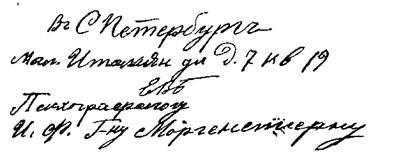 Въ С Петербургъ
Мал. Итальян ул Д. 7 кв 19
ЕВБ
Психографологу
И. Ф. Г-ну Моргенстиерну